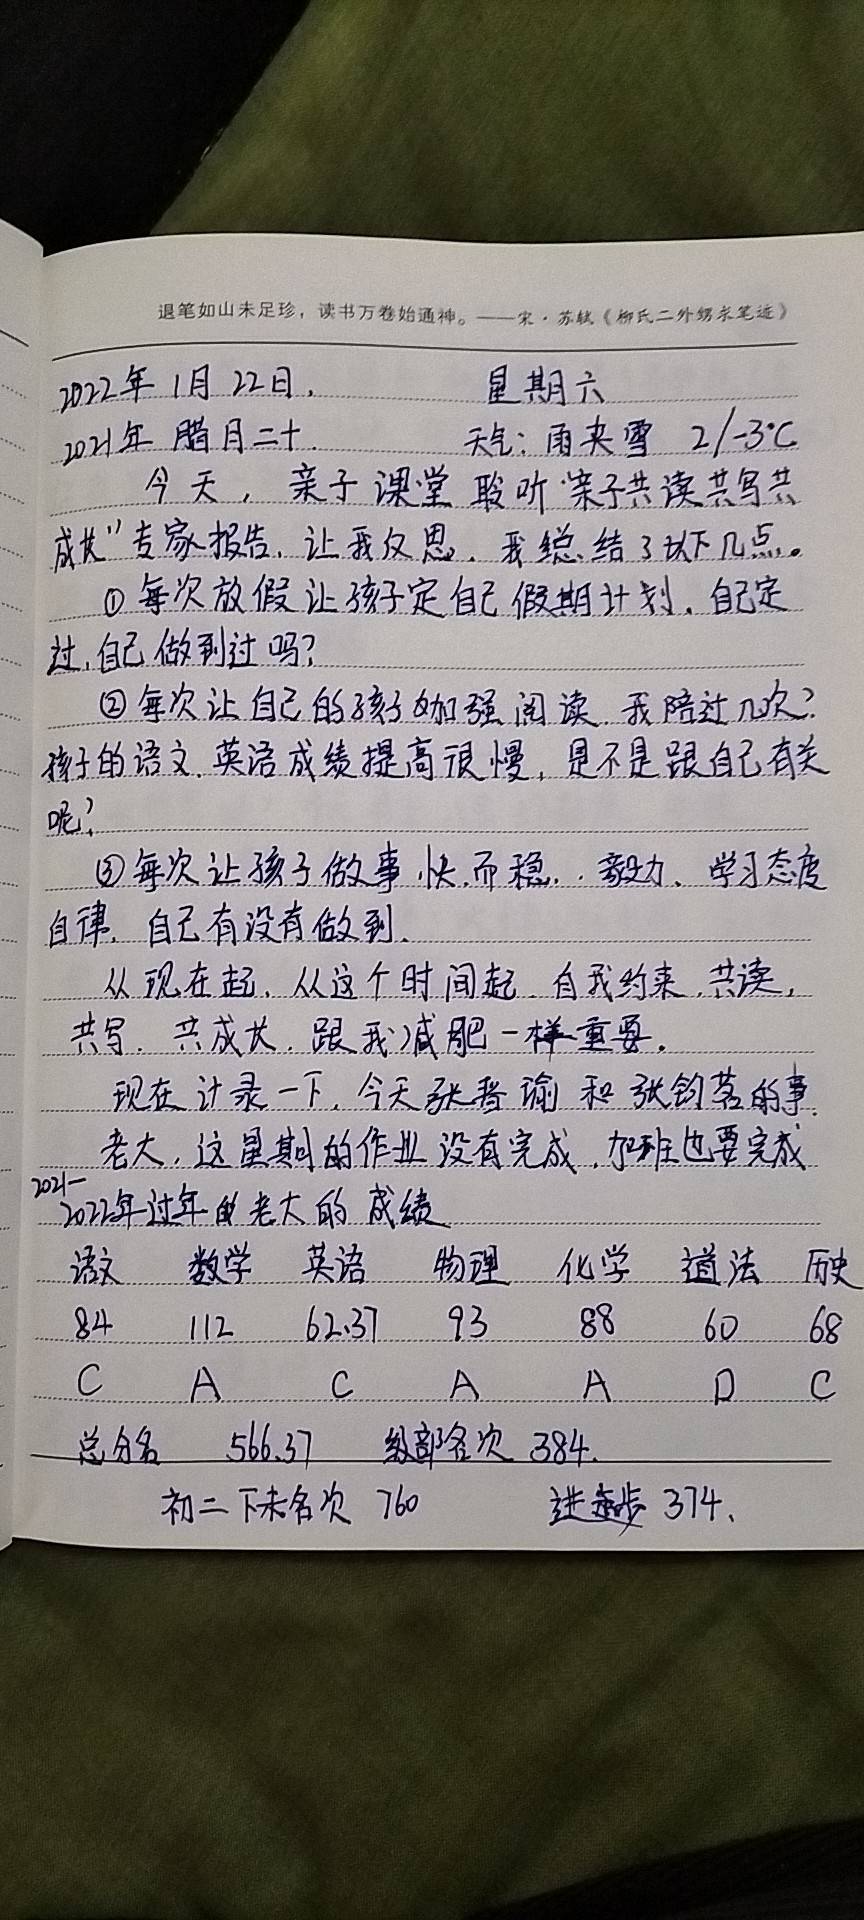 退笔如山未足珍，读书万卷始通神。——宋·苏轼《柳氏二外甥求笔迹》
2022年1月22日. 星期六
2021年 腊月二十. 天气：雨夹雪 2/-3℃
今天，亲子课堂聆听“亲子共读共写共
成长”专家报告，让我反思，我总结了以下几点。
①每次放假让孩子定自己假期计划，自己定
过，自己做到过吗？
②每次让自己的孩子加强阅读，我陪过几次？
孩子的语文、英语成绩提高很慢，是不是跟自己有关
呢？
③每次让孩子做事，快，而稳，毅力、学习态度
自律，自己有没有做到.
从现在起，从这个时间起，自我约束，共读，
共写，共成长，跟我减肥一样重要。
现在计录一下，今天张 瑜和张钧茗的事.
老大，这星期的作业没有完成，加班也要完成
2021—
2022年过年的老大的成绩
语文 数学 英语 物理 化学 道法 历史
84 112 62.37 93 88 60 68
C A C A A D C
总分名 566.37 级部名次 384.
初二下末名次 760 进步 374.